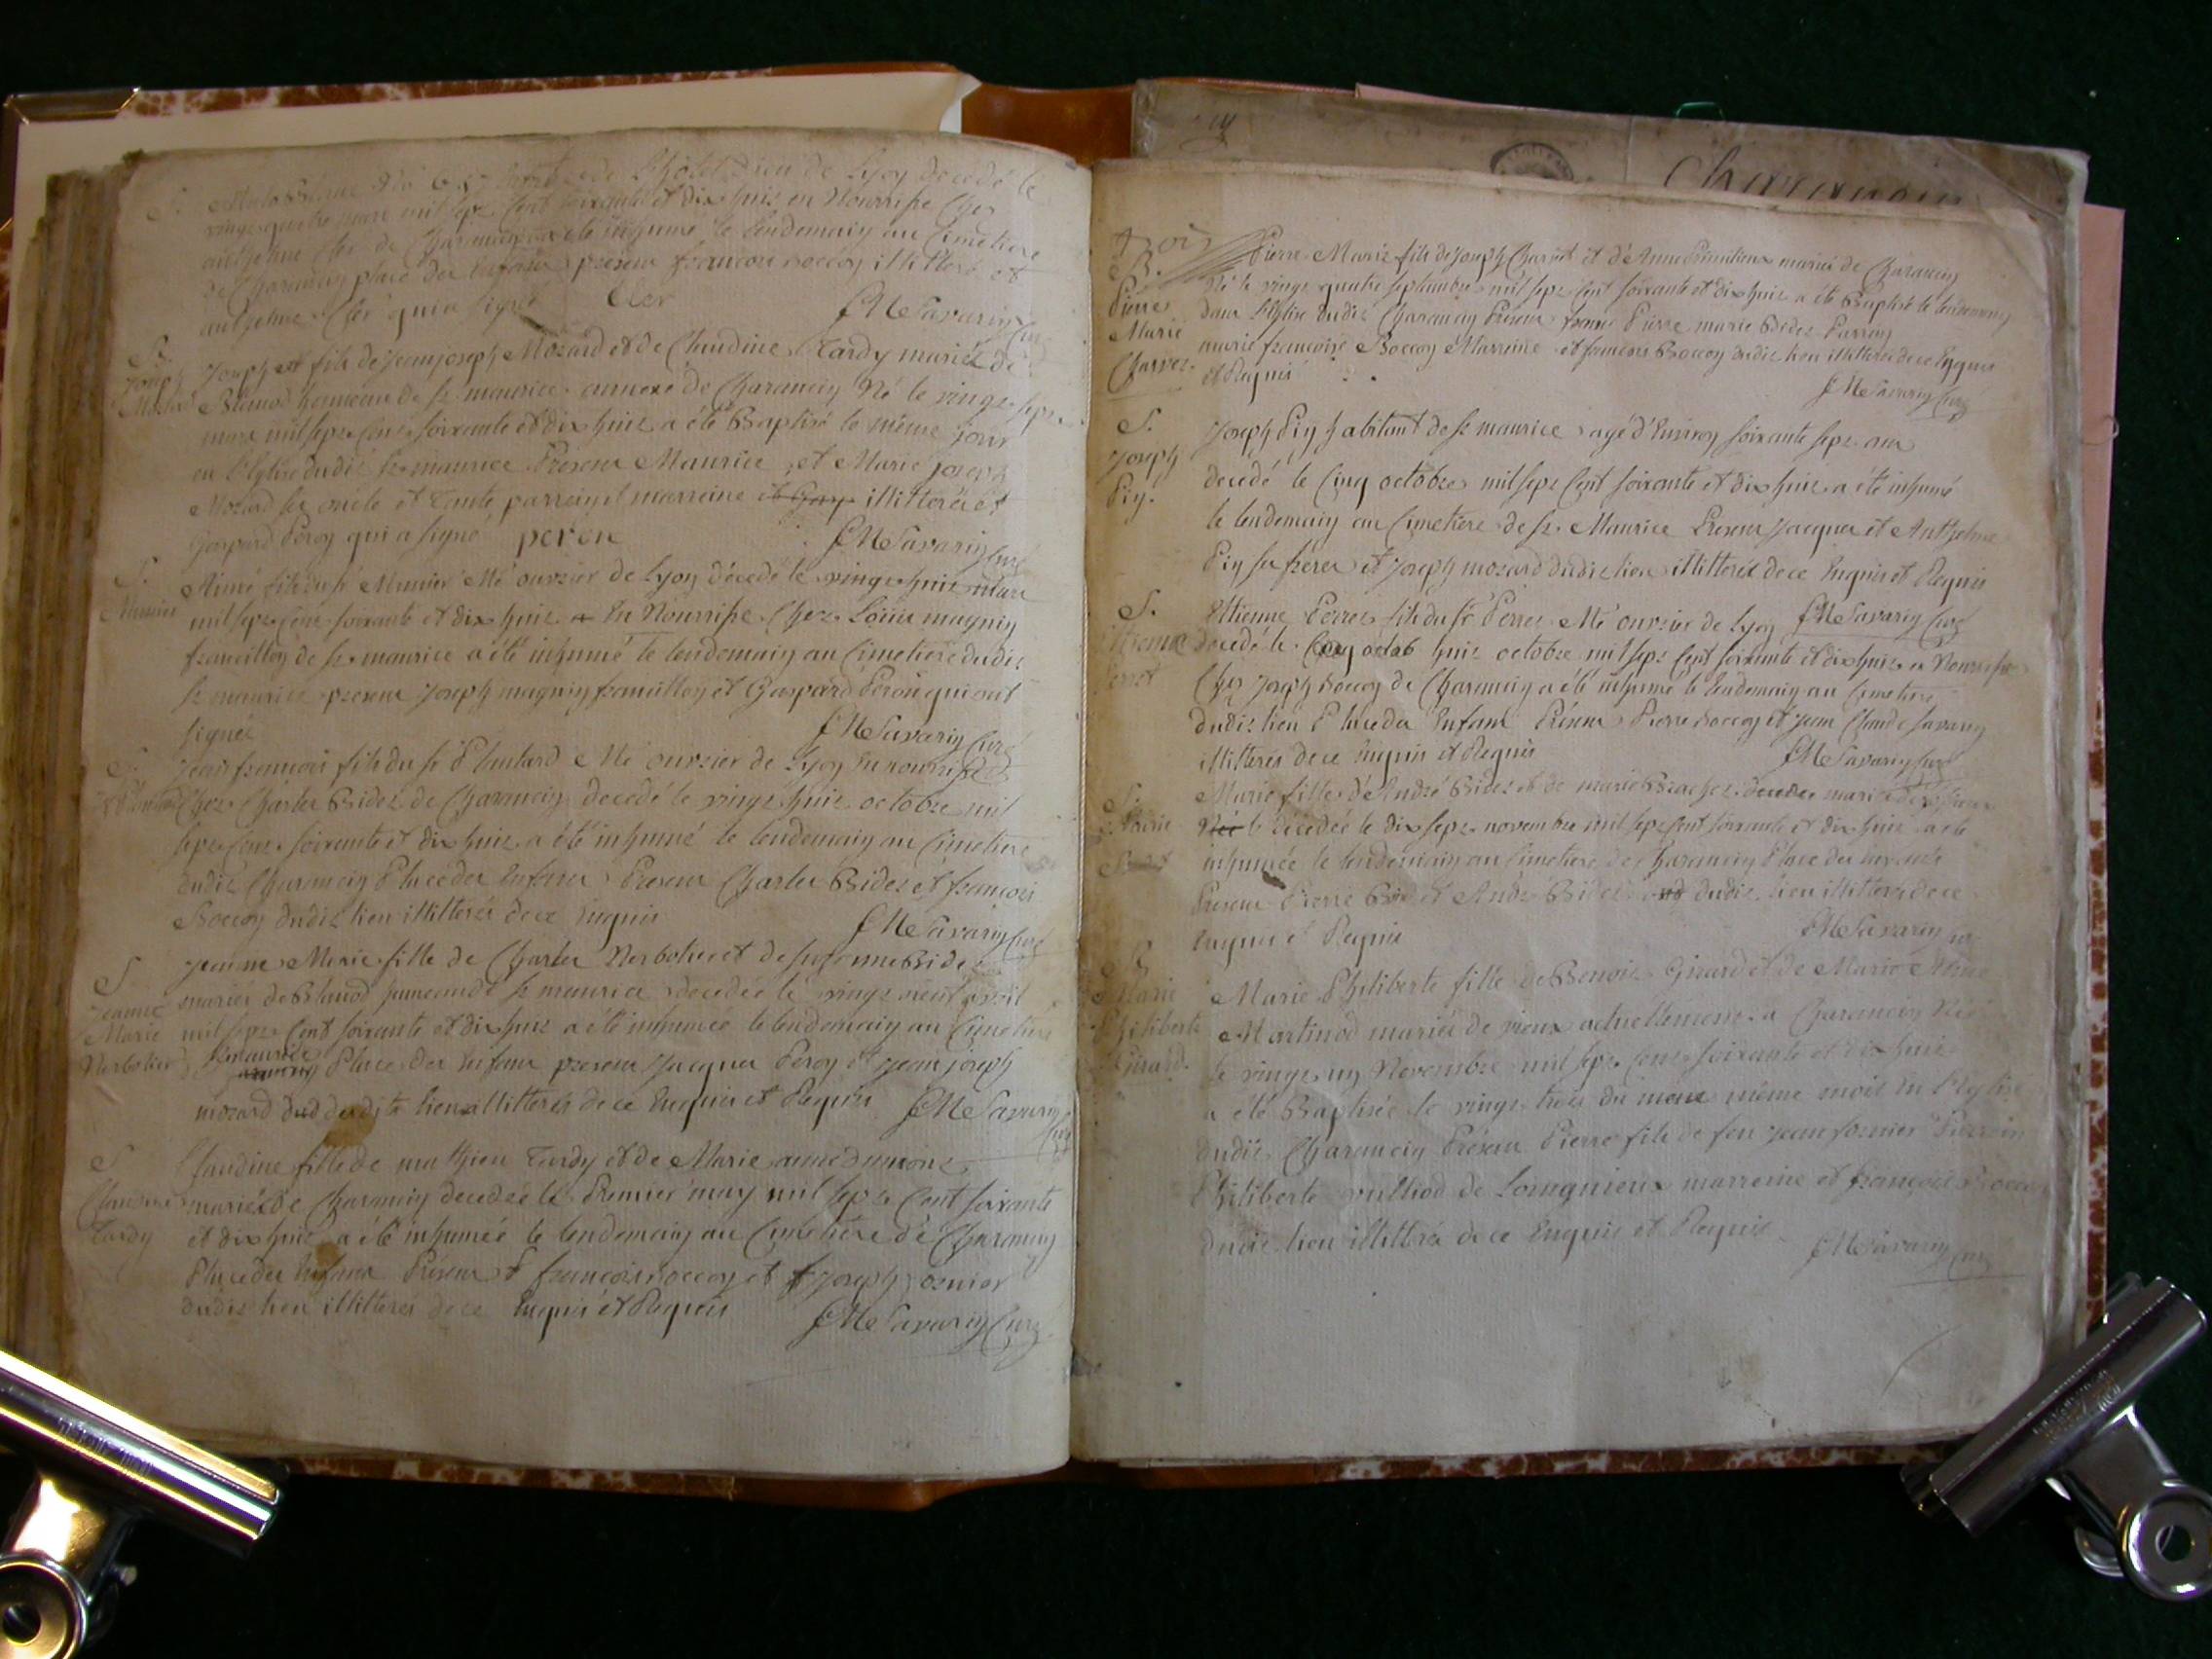 S.
de l'hotel Dieu de Lyon decedé le
vingt quatre mars mil sept Cent soixante et dix huit en Nourrisse Chez
anthelme Cler de Charancin a été inhumé le lendemain au Cimetiere
de Charancin place des Enfans presens francois Boccon illitteré et
anthelme Cler qui a signé Cler JMSavarin Curé
Joseph
Mozard
Joseph fils de jean joseph Mozard et de Claudine Tardy mariés de
Blanod hameau de st maurice annexe de Charancin Né le vingt sept
mars mil sept Cent soixante et dix huit a été Baptisé le même jour
en l'Eglise dudit st maurice Presens Maurice et Marie joseph
Mozard ses oncle et Tante parrein et marreine illitterés et
Gaspard Peron qui a signé peron JMSavarin Curé
S.
Munier
Aimé fils du sr Munier Me ouvrier de Lyon décédé le vingt huit mars
mil sept Cent soixante et dix huit en Nourrisse Chez Louis magnin
francillon de st maurice a été inhumé le lendemain au Cimetiere dudit
st maurice presens Joseph magnin francillon et Gaspard Peron qui ont
signés JMSavarin Curé
S.
Jean francois fils du sr Plantard Me ouvrier de Lyon En nourrisse
Chez Charles Bidet de Charancin decedé le vingt huit octobre mil
sept Cent soixante et dix huit a été inhumé le lendemain au Cimetiere
dudit Charancin Place des Enfans Presens Charles Bidet et francois
Boccon dudit lieu illitterés de ce Enquis JMSavarin Curé
S
Jeanne
Marie
Nerbolier
Jeanne Marie fille de Charles Nerbolier et de Bidet
mariés de Blanod hameau de st maurice decedée le vingt neuf avril
mil sept Cent soixante et dix huit a été inhumée le lendemain au Cimetiere
st maurice Place des Enfans presens Jacques Peron et jean joseph
mozard dud dudit lieu illitterés de ce Enquis et Requis JMSavarin
Curé
S
Claudine
Tardy
Claudine fille de mathieu Tardy et de Marie anne dumont
mariés de Charancin decedée le Premier may mil sept Cent soixante
et dix huit a été inhumée le lendemain au Cimetiere de Charancin
Place des Enfans Presens francois Boccon et Joseph fornier
dudit lieu illitterés de ce Enquis et Requis JMSavarin Curé
Charancin
trois
B.
Pierre
Marie
Charvet
Pierre Marie fils de Joseph Charvet et d'Anne mariés de Charancin
Né le vingt quatre septembre mil sept Cent soixante et dix huit a été Baptisé le lendemain
dans l'Eglise dudit Charancin Presens Pierre marie Bidet Parrein
marie francoise Boccon Marreine et francois Boccon dudit lieu illitterés de ce Enquis
et Requis
JMSavarin Curé
S.
Joseph
Pin.
Joseph Pin habitant de st maurice agé d'Environ soixante sept ans
decedé le Cinq octobre mil sept Cent soixante et dix huit a été inhumé
le lendemain au Cimetiere de st Maurice Presens Jacques et Anthelme
Pin ses freres et Joseph mozard dudit lieu illitterés de ce Enquis et Requis
S.
Etienne
Perret
Etienne Perret fils du sr Perret Me ouvrier de Lyon JMSavarin Curé
decedé le huit octobre mil sept Cent soixante et dix huit en Nourrisse
Chez Joseph Boccon de Charancin a été inhumé le lendemain au Cimetiere
dudit lieu Place des Enfans Presens Pierre Boccon et Jean Claude Savarin
illitterés de ce Enquis et Requis JMSavarin Curé
S.
Marie
Marie fille d'André Bidet et de marie mariés
Née decedée le dix sept novembre mil sept Cent soixante et dix huit a été
inhumée le lendemain au Cimetiere de Charancin Place des Enfans
Presens Pierre Bidet et André Bidet dudit lieu illitterés de ce
Enquis et Requis JMSavarin Curé
B.
Marie
Philiberte
Girard.
Marie Philiberte fille de Benoit Girard et de Marie
Martinod mariés de vieux actuellement a Charancin Née
le vingt un Novembre mil sept Cent soixante et dix huit
a été Baptisée le vingt trois du même mois En l'Eglise
dudit Charancin Presens Pierre fils de feu Jean fornier Parrein
Philiberte vulliod de Lompnieux marreine et francois Boccon
dudit lieu illitterés de ce Enquis et Requis
JMSavarin Curé